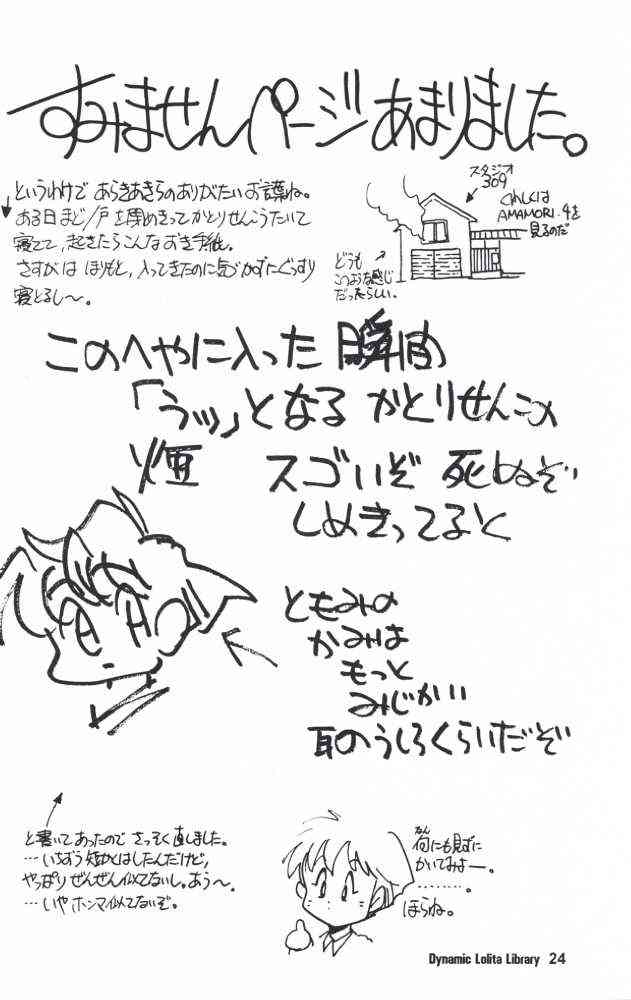 すみませんページあまりました。
というわけで あらきあきらのありがたいお言葉ね。
ある日まど/戸を閉めきってかとりせんこうたいて
寝てて、起きたらこんなおき手紙。
さすがは ほりもと、入ってきたのに気づかずにぐっすり
寝とるし〜。
スタジオ
309
くわしくは
AMAMORI・4を
見るのだ
どうも
このような感じ
だったらしい。
このへやに入った 瞬間
「うッ」となる かとりせんこの
煙 スゴいぞ 死ぬぞ
しめきってると
ともみの
かみは
もっと
みじかい
耳のうしろくらいだぞ
と書いてあったので さっそく直しました。
…いちおう短かくはしたんだけど、
やっぱりぜんぜん似てないし。あう〜。
…いやホンマ似てないぞ。
なん
何にも見ずに
かいてみよー。
………。
ほらね。
Dynamic Lolita Library 24